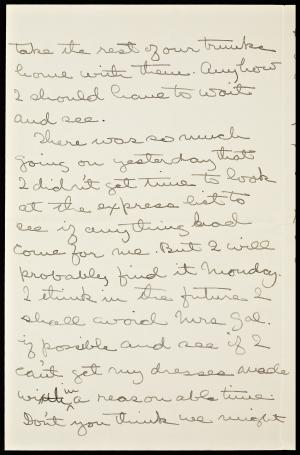 take the rest of our trunks
home with them. Anyhow
I should have to wait
and see.
There was so much
going on yesterday that
I didn't get time to look
at the express list to
see if anything had
come for me. But I will
probably find it Monday.
I think in the future I
shall avoid Mrs Gal.
if possible and see if I
can't get my dresses made
within a reasonable time.
Don't you think we might